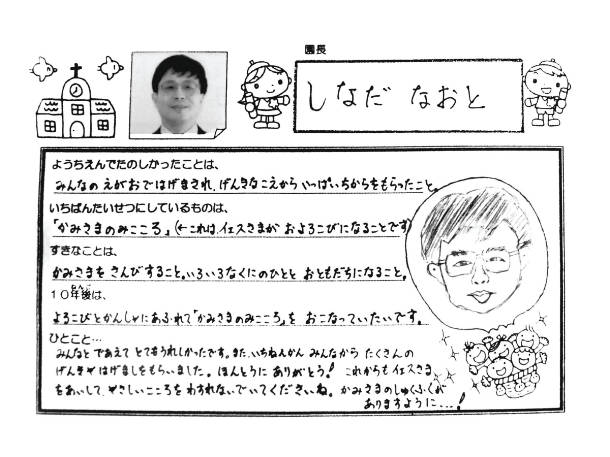 園長
しなだ なおと
ようちえんでたのしかったことは、
みんなの えがおではげまされ、げんきなこえから いっぱいちからをもらったこと。
いちばんたいせつにしているものは、
「かみさまのみこころ」(←これは、イエスさまが およろこびになることです)
すきなことは、
かみさまを さんびすること。いろいろなくにのひとと おともだちになること。
10年後は、
よろこびとかんしゃにあふれて「かみさまのみこころ」を おこなっていたいです。
ひとこと…
みんなと であえて とてもうれしかったです。また、いちねんかん みんなから たくさんの
げんきや はげましをもらいました。ほんとうに ありがとう! これからも イエスさま
をあいして、やさしいこころを わすれないでいてくださいね。かみさまのしゅくふくが
ありますように…!